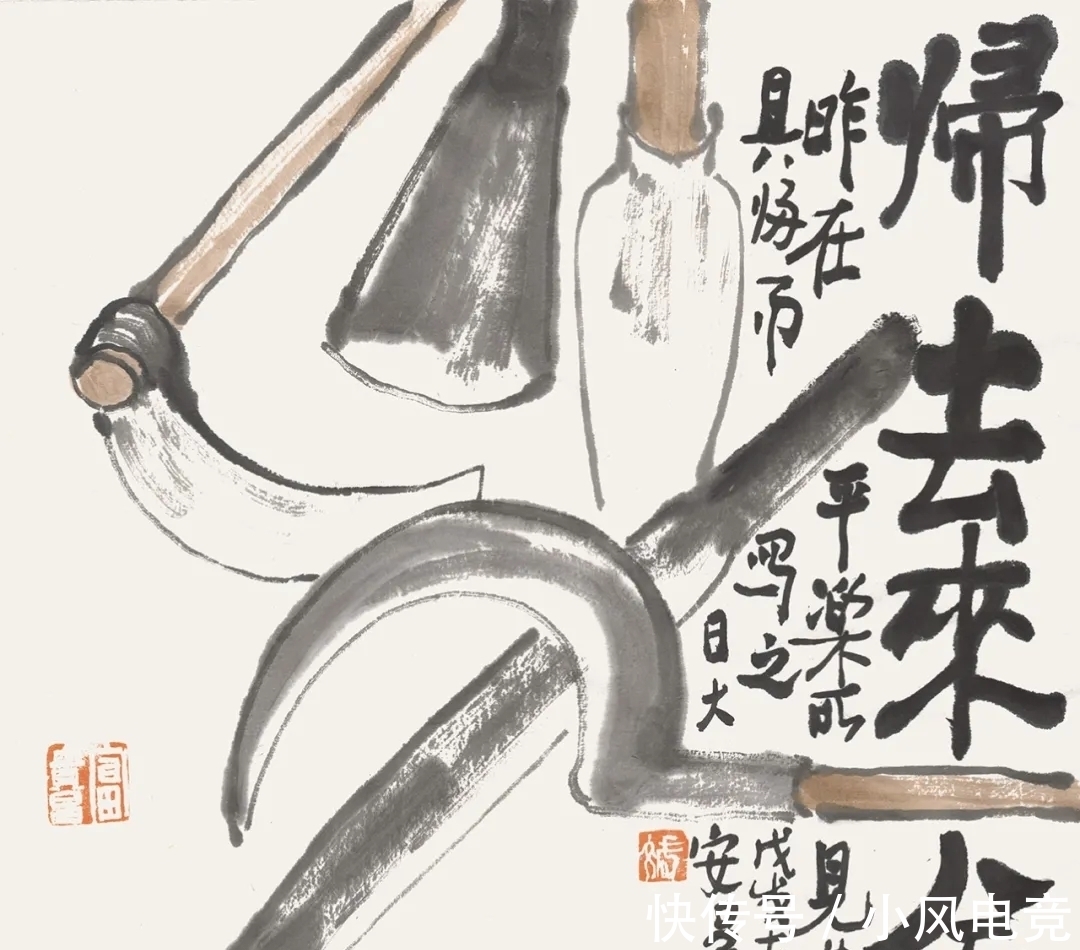 帰去來
昨在平楽所見
具 而写之戊戌
日大安
快传号 / 小风电竞